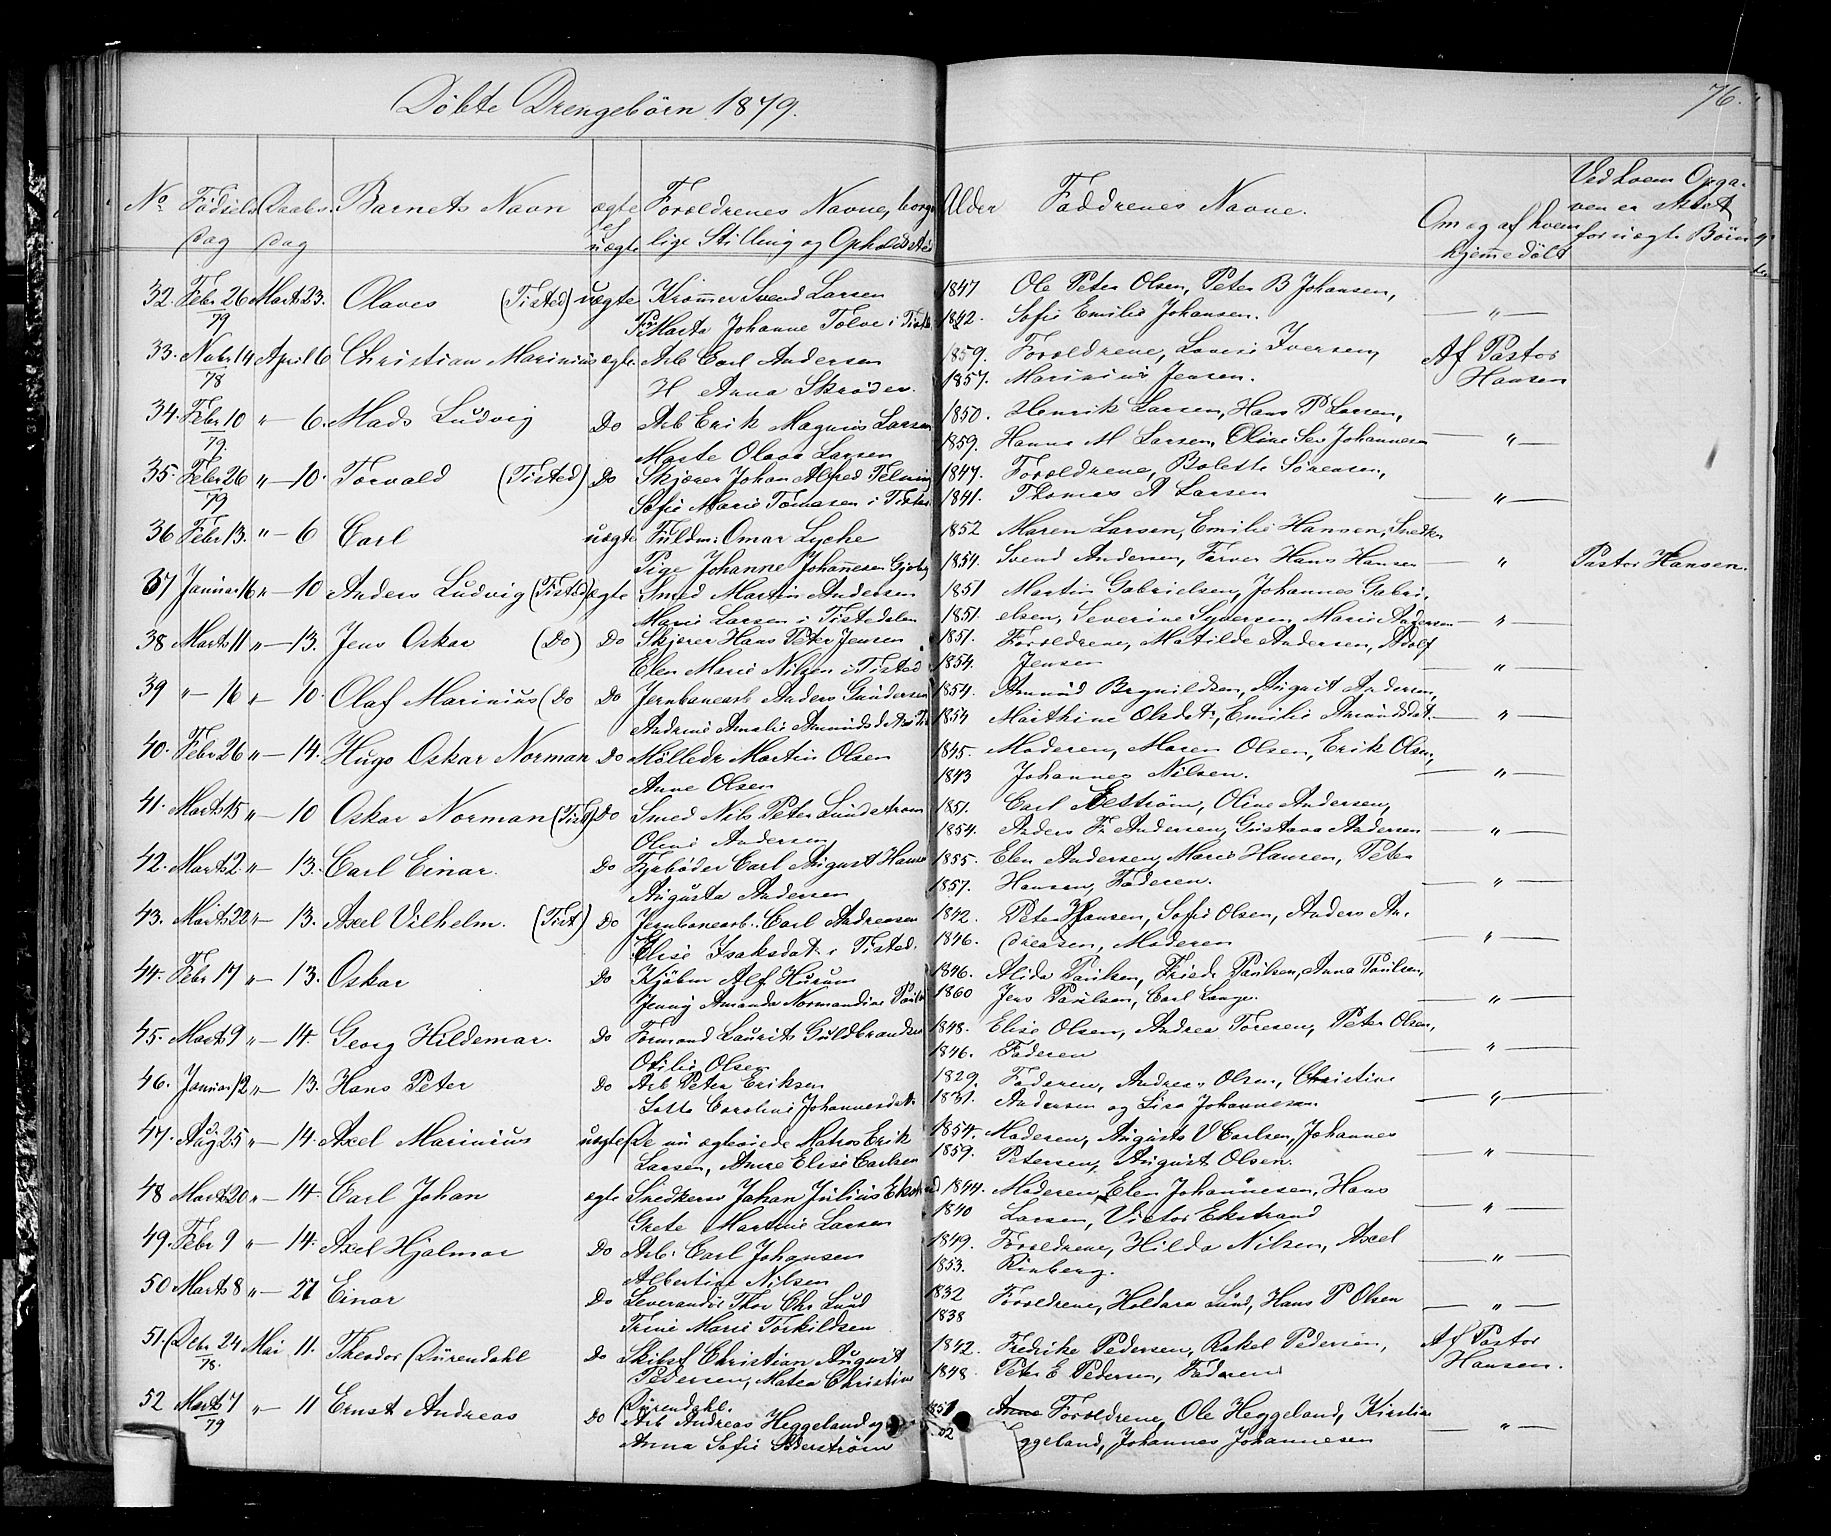 Døbte Drengebörn 1879.
76.
No Fødsels dag Daabs dag Barnets Navn ægte el uægte Forældrenes Navne, borgerlige Stilling og Opholdssted Alder Faddrenes Navne. Om og af hvem hjemmedøbt Ved hvem Opgaven er skeet for uægte Børn
32. Febr 26 Marts 23. Olaves (Tisted) uægte Kræmmer Svend Larsen 1847 Ole Peter Olsen, Peter B Johansen,
79 Pi Marte Johanne Tolve i Tisted 1842. Sofie Emilie Johansen. — " —
33. Novbr 14 April 6 Christian Marinius ægte Arb Carl Andersen 1859. Forældrene, Lovise Iversen, Af Pastor
78 H Anna Skrøder 1857. Marinius Jensen. Hansen
34. Febr 10 " — 6. Mads Ludvig Do Arb Erik Magnus Larsen 1850. Henrik Larsen, Hans P Larsen,
79. Marte Olava Larsen 1859. Hanna M Larsen, Oline Sev Johannesen — " —
35. Febr 26 " — 10. Torvald (Tisted) Do Skjærer Johan Alfred 1847. Forældrene, Bolette Sørensen,
79 Sofie Marie Tomasen i Tisted 1841. Thomas A Larsen — " —
36 Febr 13. " — 6 Carl uægte Fuldm: Omar Lyche 1852 Maren Larsen, Emilie Hansen, Snedker
Pige Johanne Johannesen 1854. Svend Andersen, Farver Hans Hansen — " — Pastor Hansen.
37 Januar 16 " — 10 Anders Ludvig (Tisted) ægte Smed Martin Andersen 1851 Martin Gabrielsen, Johannes Gabri-
Marie Larsen i Tistedalen 1851. elsen, Severine Syversen, Marie Andersen — " —
38 Marts 11 " — 13. Jens Oskar (Do) Do Skjærer Hans Peter Jensen 1851. Forældrene, Matilde Andersen, Adolf
Elen Marie Nilsen i Tisted 1854. Jensen — " —
39 " — 16 " — 10. Olaf Marinius (Do Do Jernbanearb Anders Gundersen 1854. Amund Brynildsen, August Andersen,
Andrine Amalie Amundsd 1854 Marthine Olsdat., Emilie Amundsdat. — " —
40. Febr 26 " — 14. Hugo Oskar Norman Do Mølledr Martin Olsen 1845. Moderen, Maren Olsen, Erik Olsen,
Anne Olsen 1843 Johannes Nilsen. — " —
41. Marts 15 " — 10 Oskar Norman (Tist) Do Smed Nils Peter Lundstrøm 1851. Carl Ekstrøm, Oline Andersen,
Oline Andersen 1854. Anders Fr Andersen, Gustava Andersen — " —
42. Marts 2 " — 13. Carl Einar. Do Fyrbøder Carl August Hansen 1855. Elen Andersen, Marie Hansen, Peter
Augusta Andersen 1857. Hansen, Faderen. — " —
43. Marts 22 " — 13. Axel Vilhelm. (Tist) Do Jernbanearb. Carl Andreasen 1842. Peter Hansen, Sofie Olsen, Anders An-
Elise Isaksdat. i Tisted. 1846. dreasen, Moderen — " —
44. Febr 17 " — 13. Oskar Do Kjøbm Alf Hurum 1846. Alida Paulsen, Fried. Paulsen, Anna Paulsen,
Jenny Amanda Normandine Paulsen 1860 Jens Paulsen, Carl Lange. — " —
45. Marts 9 " — 14. Georg Hildemar. Do Formand Laurits Guldbrandsen 1848. Elise Olsen, Andrea Toresen, Peter Olsen,
Otilie Olsen 1846. Faderen — " —
46. Januar 12 " — 13. Hans Peter Do Arb Peter Eriksen 1829. Faderen, Andreas Olsen, Christine
Lotte Caroline Johannesdat. 1831. Andersen og Lisa Johannesen — " —
47. Aug 25 " — 14. Axel Marinius uægte (De nu ægteviede Matros Erik 1854. Moderen, Augusta V Carlsen, Johannes
Larsen, Anne Elise Carlsen 1859. Petersen, August Olsen. — " —
48 Marts 20 " — 14. Carl Johan ægte Snedkersv Johan Julius Ekstrand 1844. Moderen, Elen Johannesen, Hans
Grete Martine Larsen 1840 Larsen, Victor Ekstrand — " —
49. Febr 9 " — 14. Axel Hjalmar Do Arb. Carl Johansen 1849. Forældrene, Hilda Nilsen, Axel
Albertine Nilsen 1853. Rinberg. — " —
50 Marts 8 " — 27 Einar Do Leverandør Thor Chr Lund 1832 Forældrene, Haldora Lund, Hans P Olsen
Trine Marie Torkildsen 1838 — " —
51. Debr 24 Mai 11. Theodor Dürendahl Do Skibsf Christian August 1842. Fredrike Pedersen, Rakel Pedersen, Af Pastor
78. Pedersen, Matea Christine 1848. Peter E Pedersen, Faderen Hansen.
Dürendahl.
52 Marts 7 " — 11 Ernst Andreas Do Arb Andreas Heggeland og 1851 Anne Forældrene, Ole Heggeland, Kirstine
79 Anna Sofie Søderstrøm 52 ggeland, Johannes Johannesen — " —